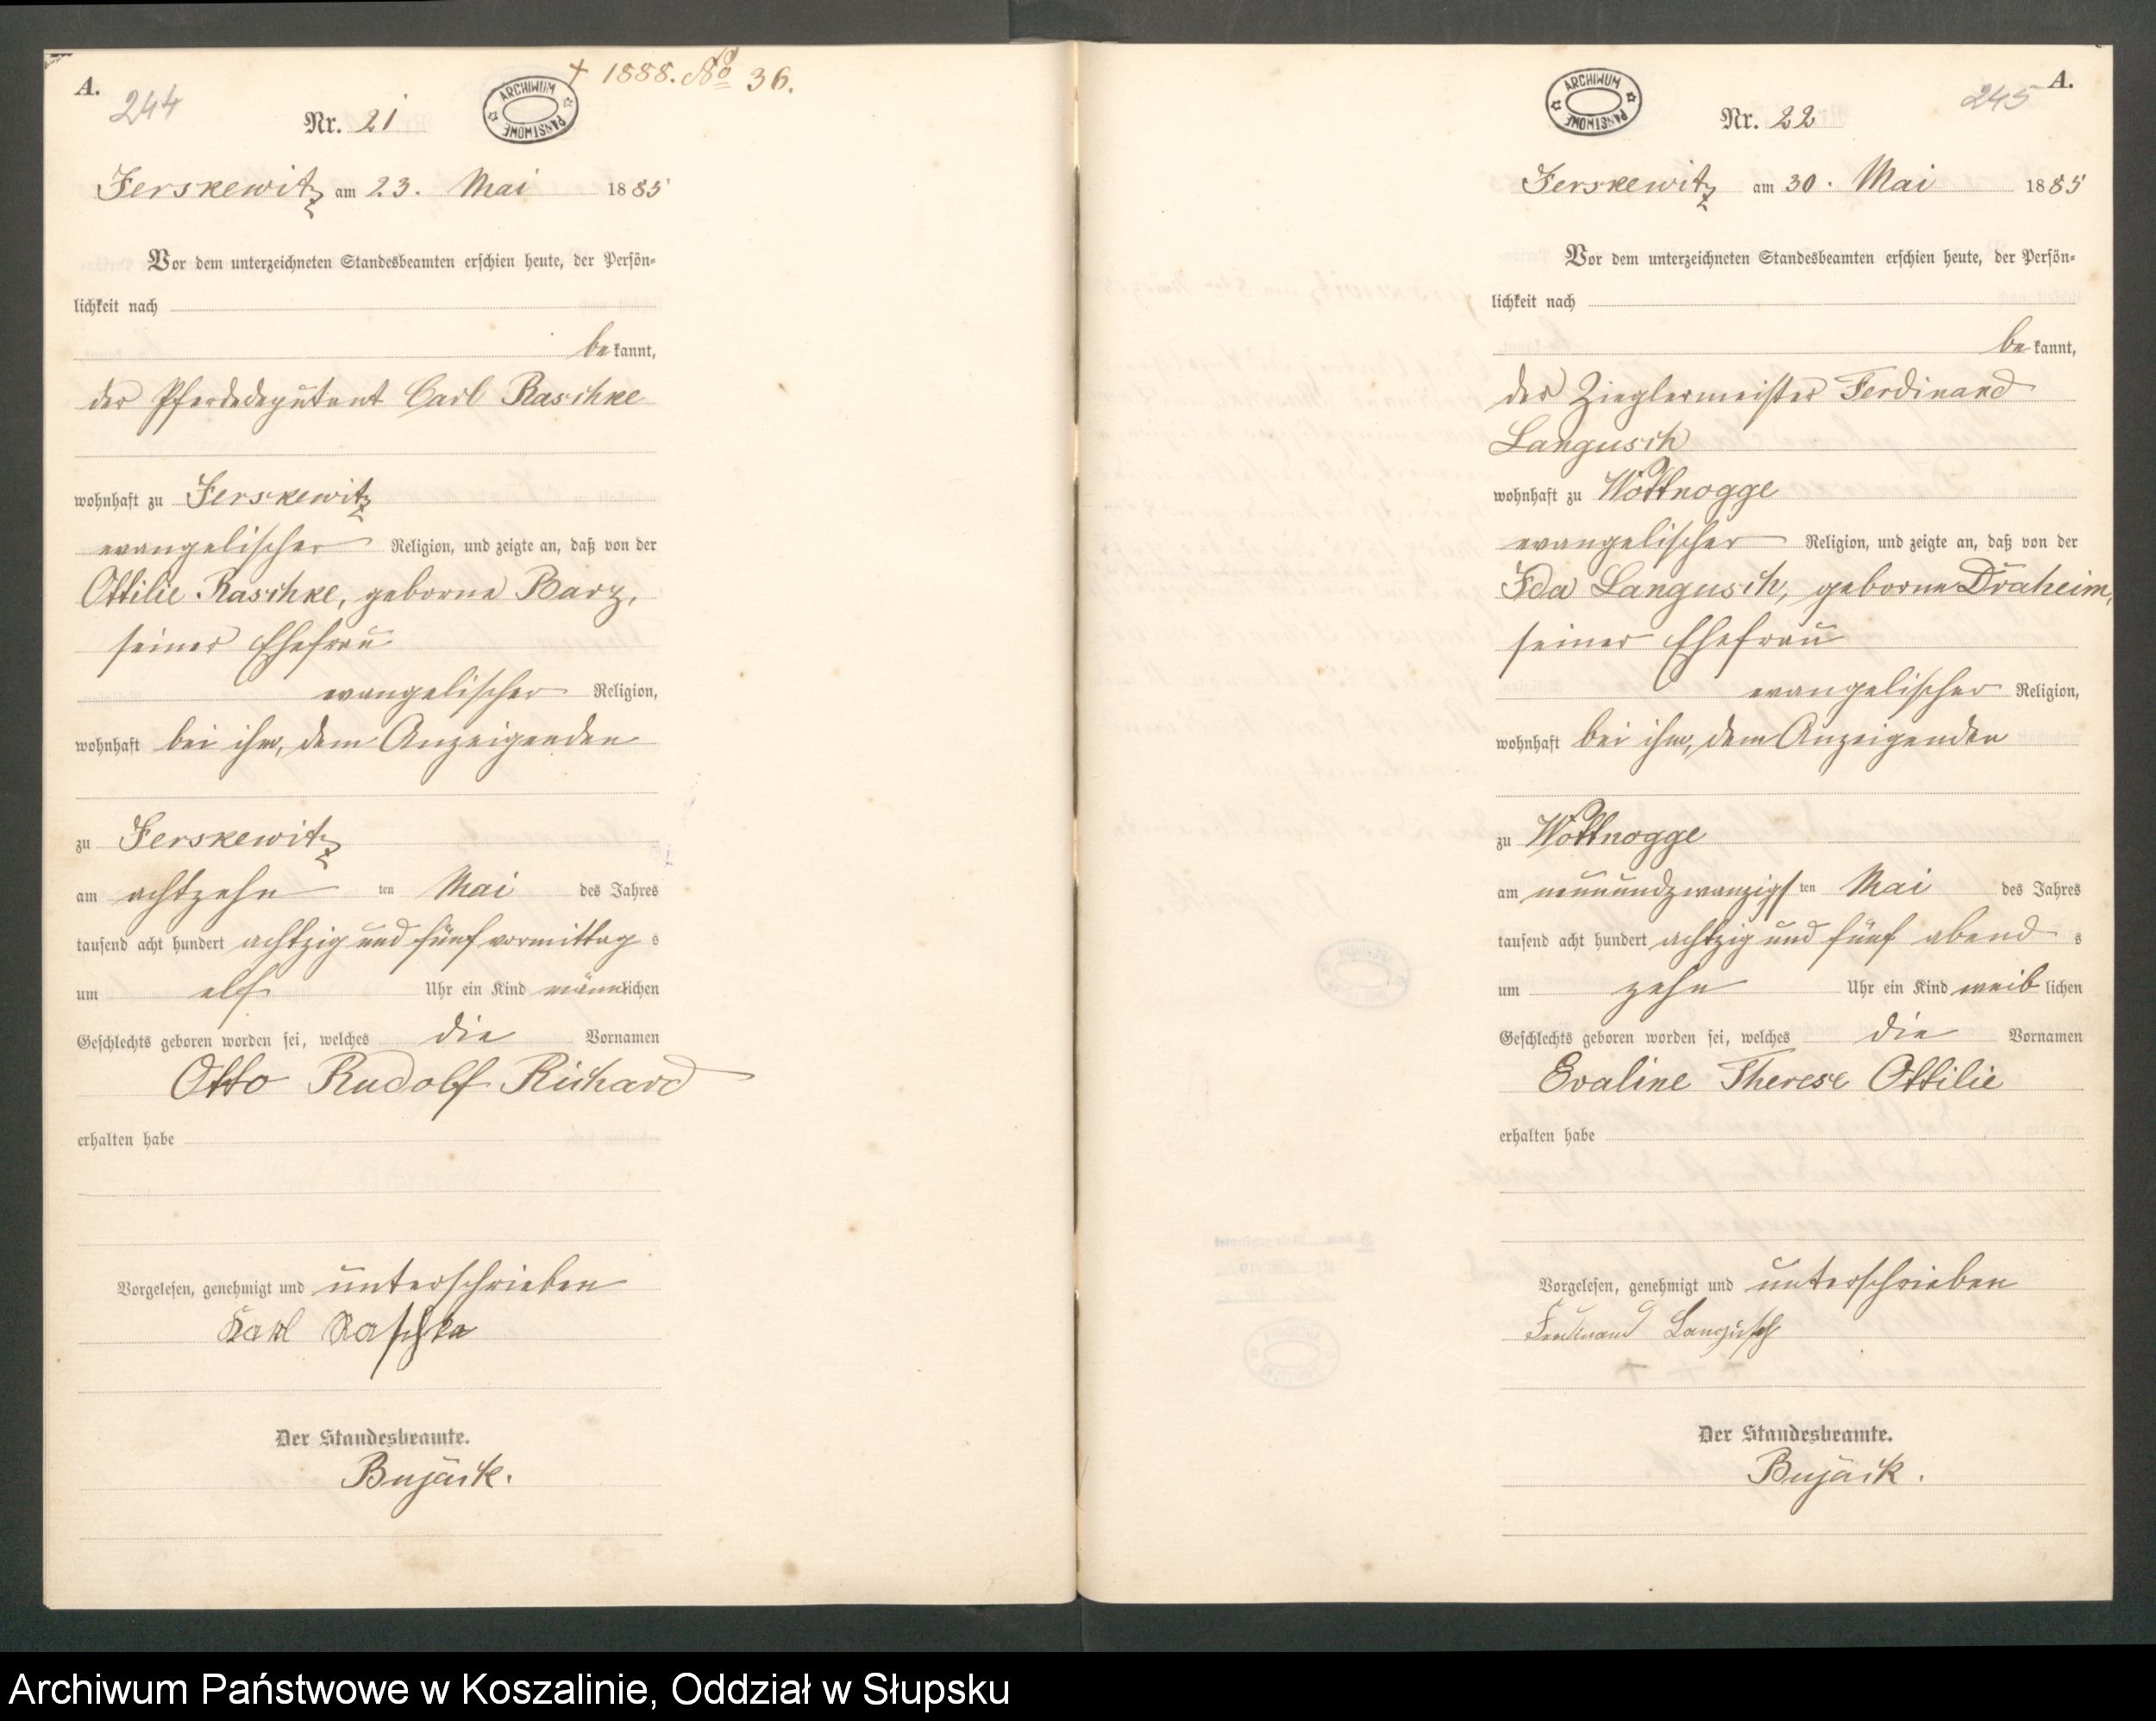 A.
244
Nr. 21
ARCHIWUM PAŃSTWOWE
† 1888. No 36.
Jerskewitz am 23. Mai 1885
Vor dem unterzeichneten Standesbeamten erschien heute, der Persön=
lichkeit nach
bekannt,
der Pferdedeputant Carl Raschke
wohnhaft zu Jerskewitz
evangelischer Religion, und zeigte an, daß von der
Ottilie Raschke, geborne Barz,
seiner Ehefrau
evangelischer Religion,
wohnhaft bei ihm, dem Anzeigenden
zu Jerskewitz
am achtzehn ten Mai des Jahres
tausend acht hundert achtzig und fünf vormittag s
um elf Uhr ein Kind männlichen
Geschlechts geboren worden sei, welches die Vornamen
Otto Rudolf Richard
erhalten habe
Vorgelesen, genehmigt und unterschrieben
Karl Raschke
Der Standesbeamte.
Bujäck.
ARCHIWUM PAŃSTWOWE
245
A.
Nr. 22
Jerskewitz am 30. Mai 1885
Vor dem unterzeichneten Standesbeamten erschien heute, der Persön=
lichkeit nach
bekannt,
der Zieglermeister Ferdinand
Langusch
wohnhaft zu Wottnogge
evangelischer Religion, und zeigte an, daß von der
Ida Langusch, geborne Draheim,
seiner Ehefrau
evangelischer Religion,
wohnhaft bei ihm, dem Anzeigenden
zu Wottnogge
am neunundzwanzigsten Mai des Jahres
tausend acht hundert achtzig und fünf abend s
um zehn Uhr ein Kind weiblichen
Geschlechts geboren worden sei, welches die Vornamen
Evaline Therese Ottilie
erhalten habe
Vorgelesen, genehmigt und unterschrieben
Ferdinand Langusch
Der Standesbeamte.
Bujäck.
Archiwum Państwowe w Koszalinie, Oddział w Słupsku